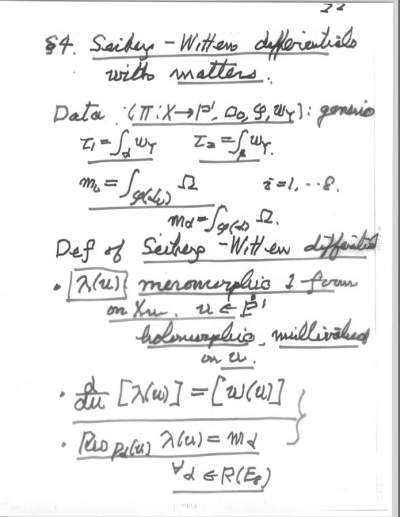 22
§4. Seiberg-Witten differentials
with matters.
Data : (π: X→P¹, D₀, φ, ω_Y): generic
τ₁=∫_α ω_Y τ₂=∫_β ω_Y.
m_i=∫_φ(α_i) Ω i=1,..8.
m_α=∫_φ(α) Ω.
Def of Seiberg-Witten differential
• λ(u) meromorphic 1-form
on X_u. u ∈ P¹
holomorphic, multivalued
on u.
• d/du [λ(u)] = [ω(u)]
• Res_{P_α(u)} λ(u) = m_α
∀α ∈ R(E₈)